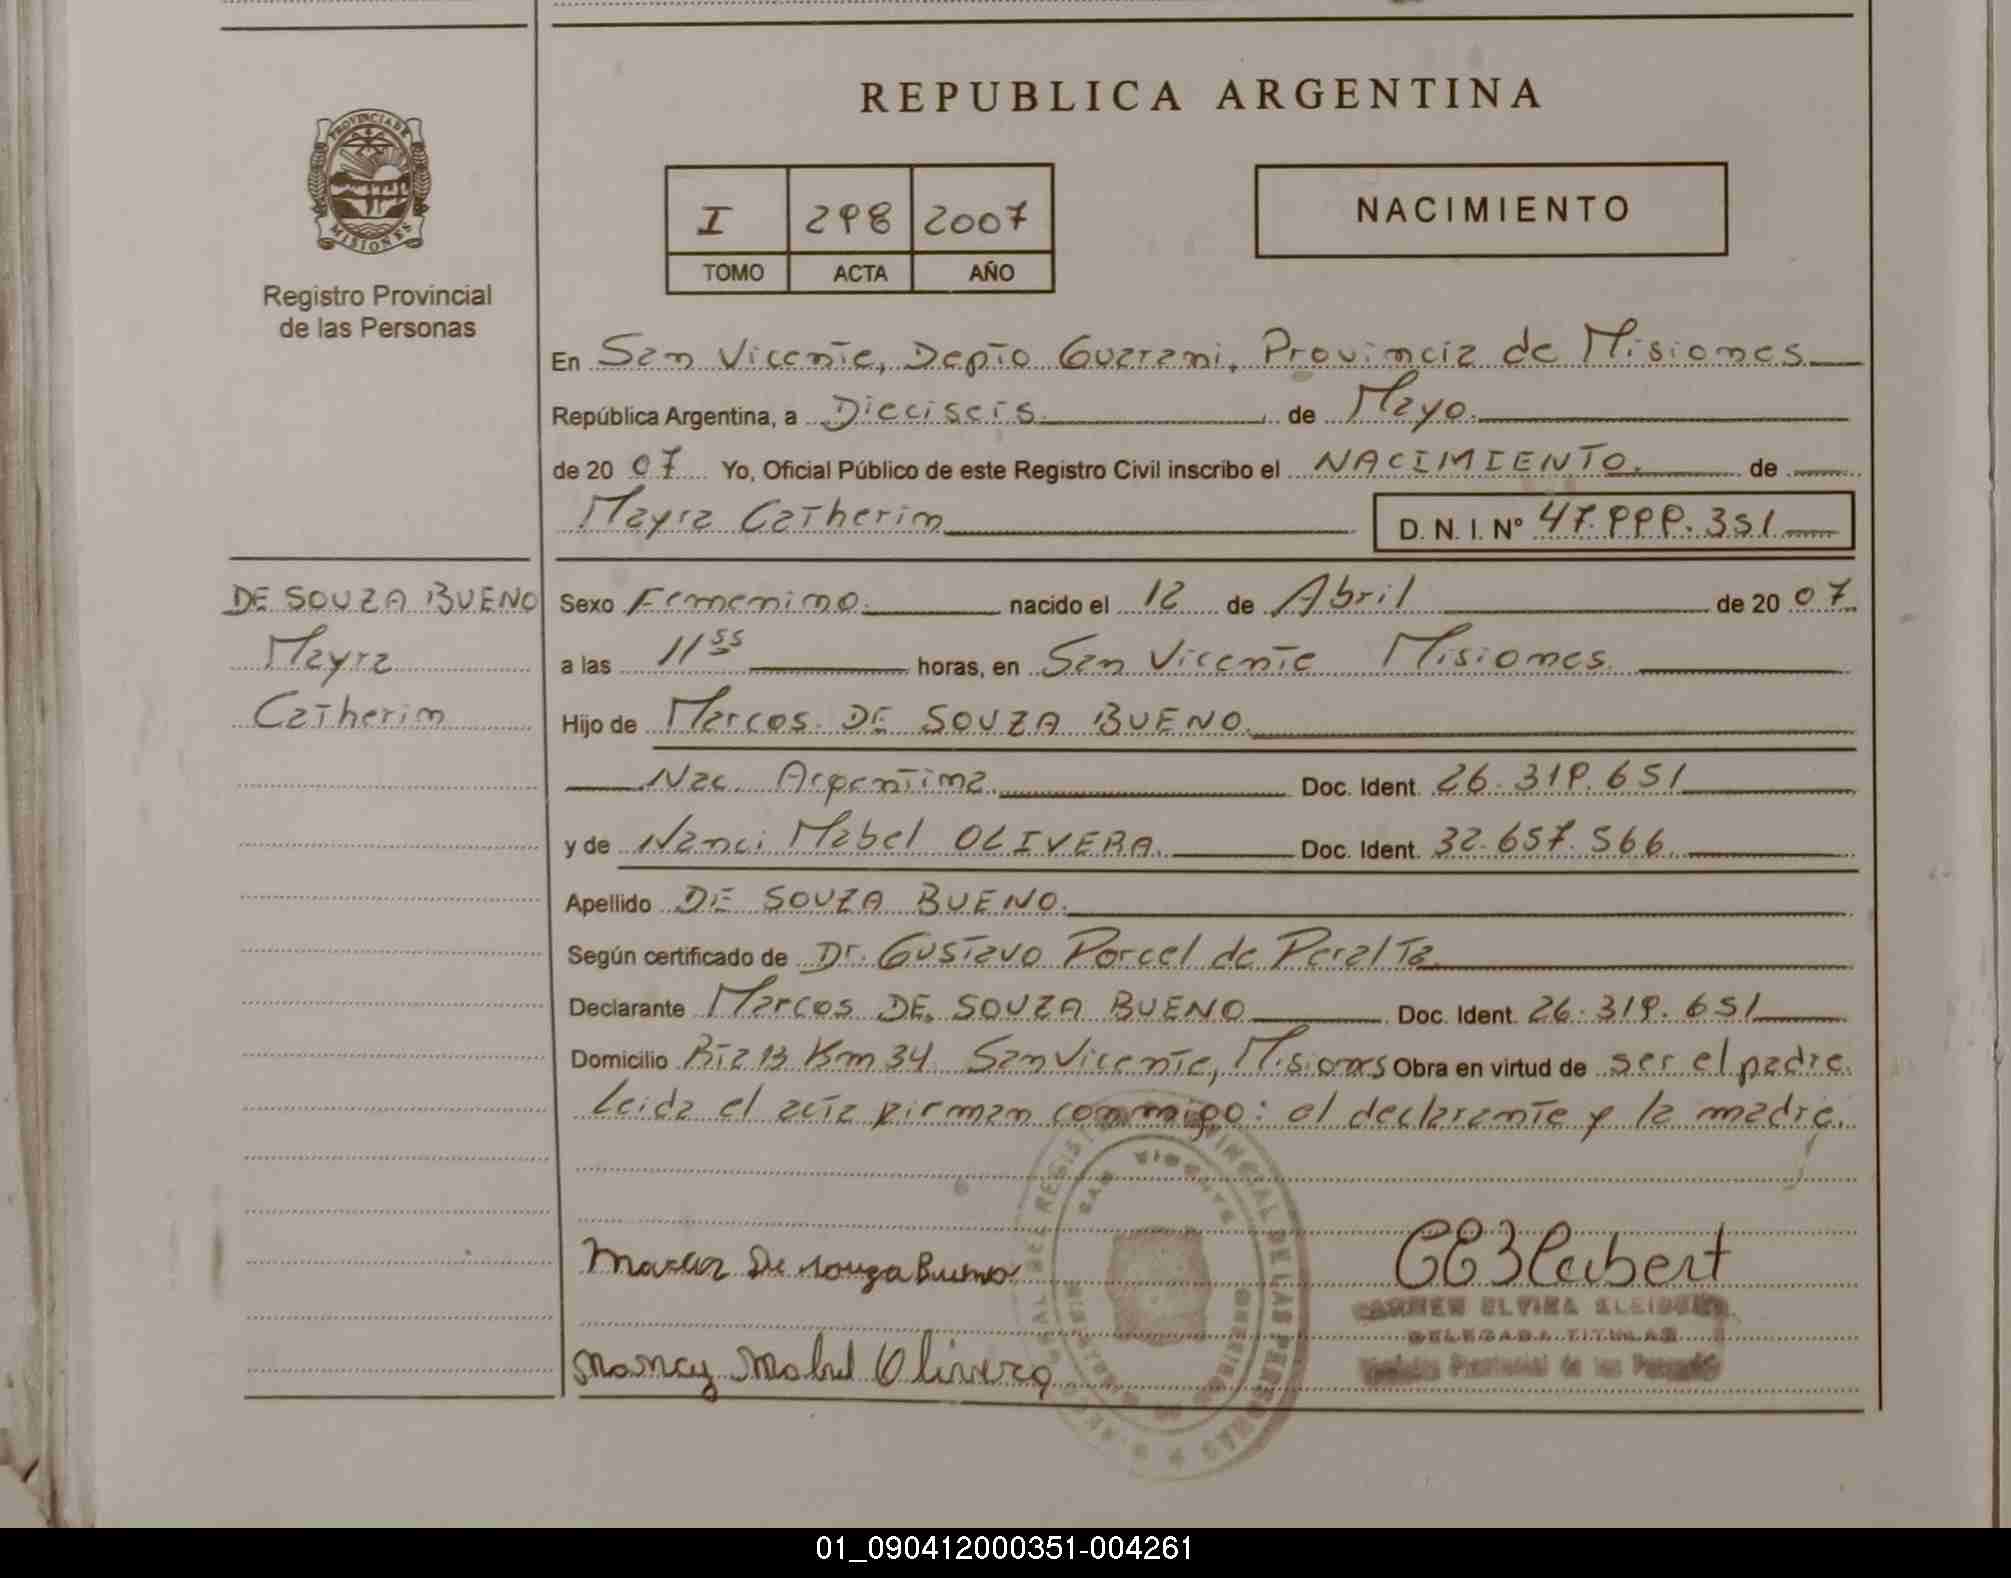 REPUBLICA ARGENTINA
PROVINCIA DE
MISIONES
Registro Provincial
de las Personas
I 298 2007
TOMO ACTA AÑO
NACIMIENTO
En San Vicente, Depto Guarani, Provincia de Misiones
República Argentina, a Dieciseis de Mayo
de 20 07 Yo, Oficial Público de este Registro Civil inscribo el NACIMIENTO de
Mayra Catherin D. N. I. Nº 47.999.351
DE SOUZA BUENO
Mayra
Catherin
Sexo Femenino nacido el 12 de Abril de 20 07
a las 11 55 horas, en San Vicente Misiones
Hijo de Marcos DE SOUZA BUENO
Nac. Argentina Doc. Ident. 26.319.651
y de Nanci Mabel OLIVERA Doc. Ident. 32.657.566
Apellido DE SOUZA BUENO
Según certificado de Dr. Gustavo Porcel de Peralta
Declarante Marcos DE SOUZA BUENO Doc. Ident. 26.319.651
Domicilio Rta 13 Km 34 San Vicente, Misiones Obra en virtud de ser el padre.
Leida el acta firman conmigo: el declarante y la madre.
Marcos De Souza Bueno
Nancy Mabel Olivera
CARMEN ELVIRA KLEIBERT
DELEGADA TITULAR
Registro Provincial de las Personas
SAN VICENTE
01_090412000351-004261